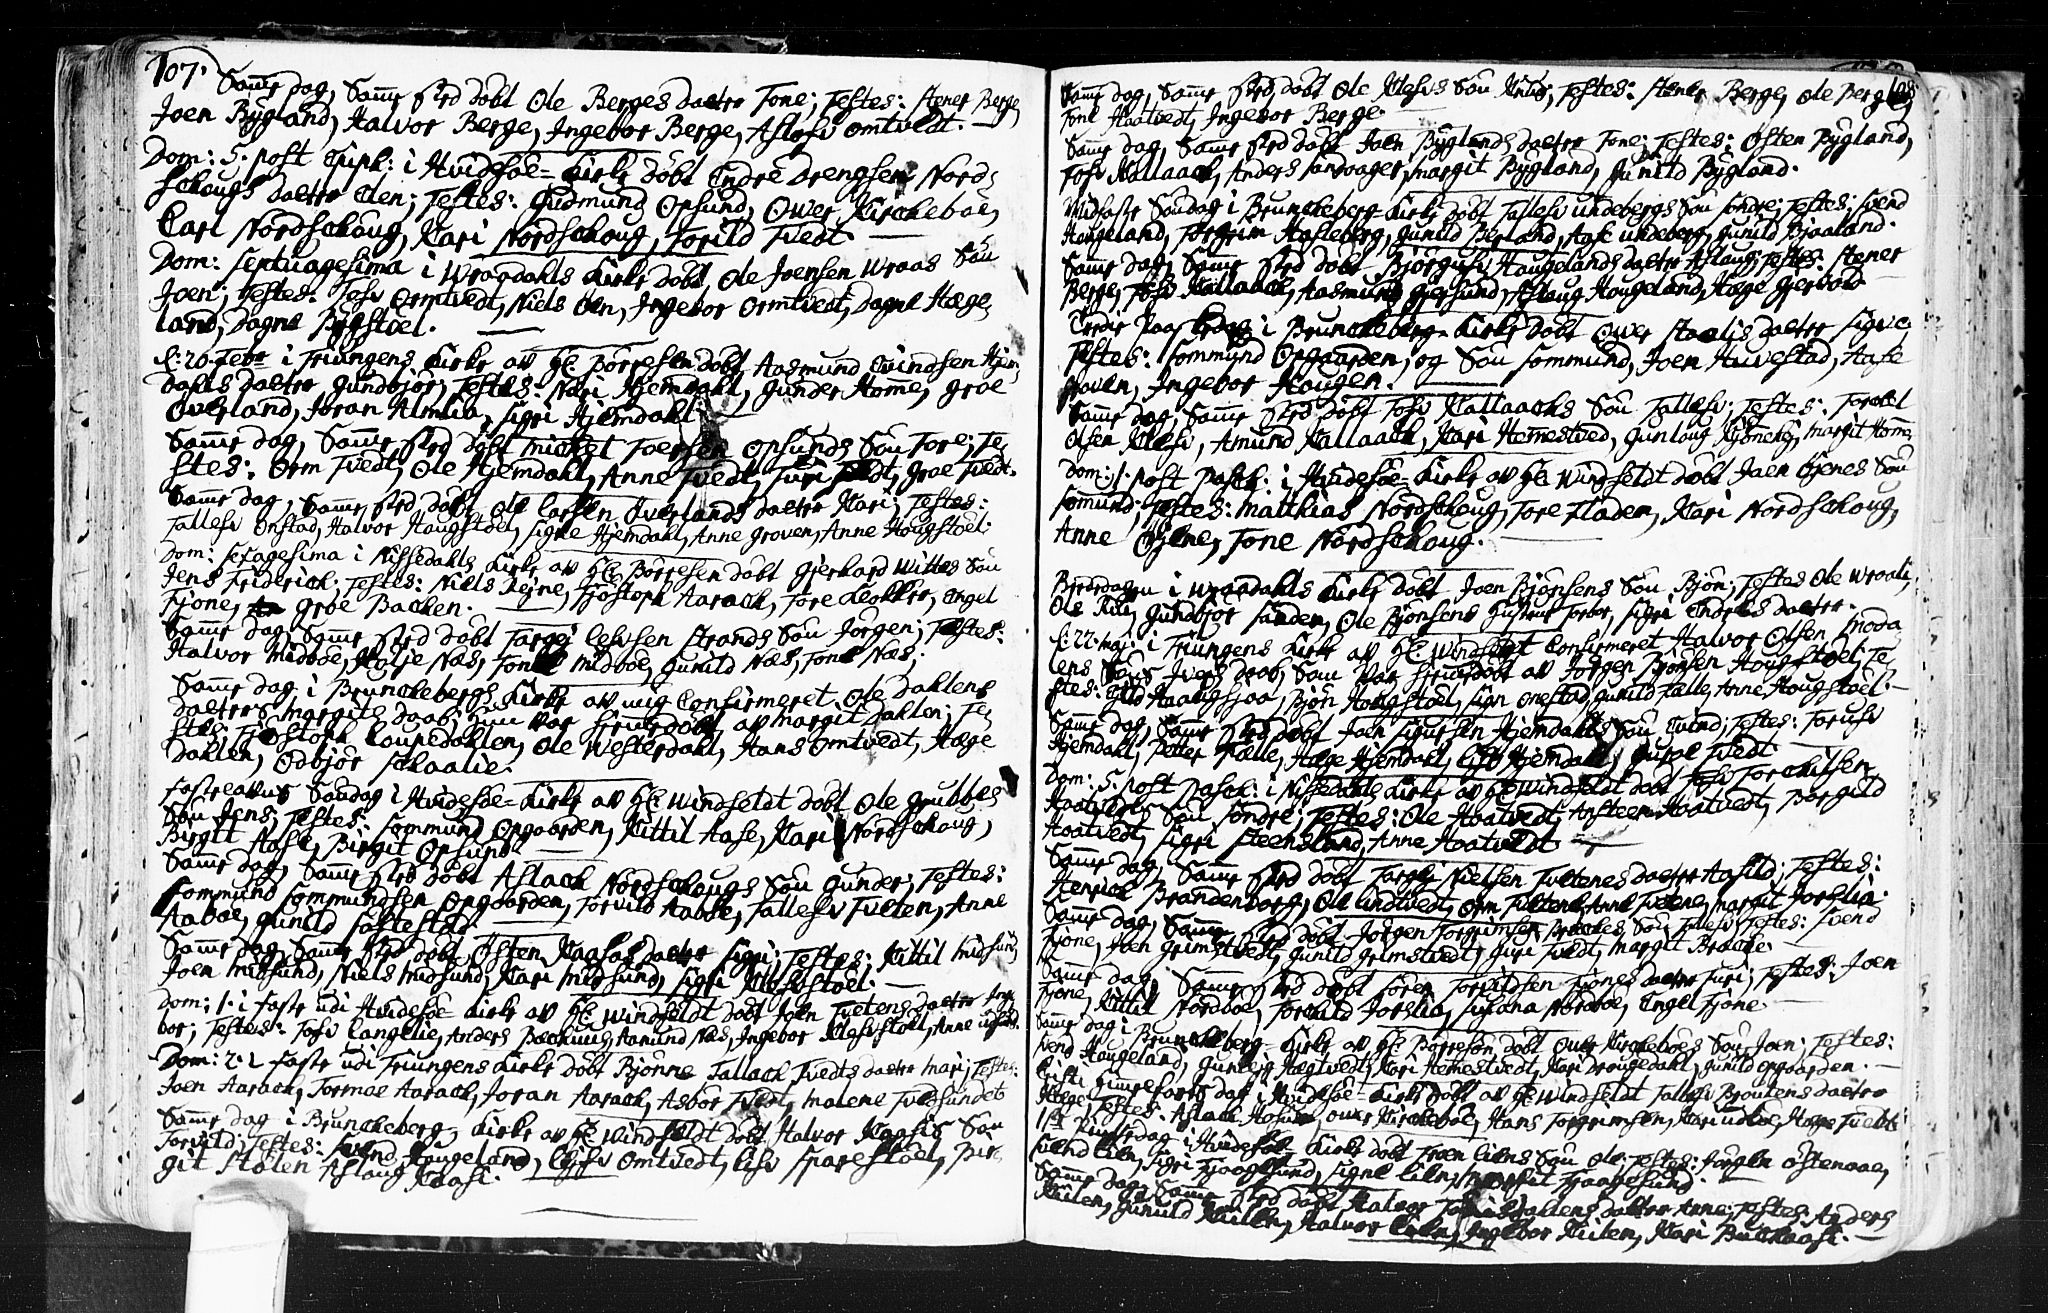 107.
Samme dag, Samme sted döbt Ole Berges daatter Tone; Testes: Stener Berge,
Joen Bÿgland, Halvor Berge, Ingebor Berge, Aslov Omtvedt.
Dom: 5. post Epiph: i Hvidesöe-Kirke döbt Endre Drengsen Nord-
schougs daatter Elen; Testes: Gudmund Opsund, Ower Kircheboe,
Carl Nordschoug, Kari Nordschoug, Torild Tvedt.
Dom: Septuagesima i Wraadahls Kirke döbt Ole Joensen Wraas Sön
Joen; Testes: Tosv Ormtvedt, Niels Oen, Ingebor Ormtvedt, Dagne Hæge-
land, Dagne Bÿgstoel.
d: 20. Febr i Triungens Kirke av Hr: Börresen döbt Aasmund Evindsen Hjem-
dahls daatter Gunbjör; Testes: Kari Hjemdahl, Gunder Homme, Groe
Overland, Joran Almlia, Sigri Hjemdahl.
Samme dag, Samme sted döbt Michel Toersen Opsunds Sön Tore; Te-
stes: Orm Tvedt, Ole Hjemdahl, Anne Tvedt, Turi Tvedt, Groe Tvedt.
Samme dag, Samme sted döbt Ole Carlsen Overlands daatter Kari; Testes:
Tallesv Onstad, Halvor Hougstoel, Signe Hjemdahl, Anne Groven, Anne Hougstoel.
Dom: Sexagesima i Nissedahls Kirke av Hr: Börresen döbt Gjerhard Wittes Sön
Jens Friderich; Testes: Niels Rejne, Fjöstoph Aarach, Tore Klokker, Engel
Fjone, Groe Backen.
Samme dag, Samme sted döbt Targej Levsen Strands Sön Jörgen; Testes:
Halvor Midböe, Kolje Næs, Tone Midböe, Gunild Næs, Tone Næs;
Samme dag i Brunckebergs Kirke av mig Confirmeret Ole Dahlens
daatters Margits daab; hun var hiemedöbt av Margit Dahlen; Te-
stes: Fjöstoph Coupedahlen, Ole Westerdahl, Hans Omtvedt, Hæge
Dahlen, Odbjör Schaalie.
Fastelavns Söndag i Hvidesöe-Kirke av Hr: Windfeldt döbt Ole Grubbes
Sön Jens; Testes: Sommund Opgaarden, Kittil Aase, Kari Nordschoug,
Birgit Aase, Birgit Opsund.
Samme dag, Samme sted döbt Aslach Nordschougs Sön Gunder; Testes:
Sommund Sommundsen Opgaarden, Torvild Aaböe, Tallesv Tveten, Anne
Aaböe, Gunild Fastestad.
Samme dag, Samme sted döbt Östen Kaasas daatter Sigri; Testes: Kittil Midsund,
Joen Midsund, Niels Midsund, Kari Midsund, Sigri Klefstoel.
Dom: 1. i faste udi Hvidesöe-Kirke av Hr: Windfeldt döbt Joen Tvetens daatter Inge-
bor; Testes: Tosv Langelie, Anders Backung, Aamund Næs, Ingebor Klefstoel, Anne
Dom: 2. i faste udi Triungens Kirke döbt Bjönne Tallach Tvedts daatter Mari; Testes:
Joen Aarach, Tormoe Aarach, Joran Aarach, Asbör Tvedt, Malene Tvedsundet
Samme dag i Bruncheberg-Kirke av Hr: Windfeldt döbt Halvor Kaasis Sön
Torvild; Testes: Svend Hougeland, Lejsv Omtvedt, Lisv Sparestoel, Bir-
git Stolen Aslaug Kaasi.
108
Samme dag, Samme sted döbt Ole Klefs Sön Knud; Testes: Stener Berge, Ole Berge,
Tone Haatvedt, Ingebor Berge.
Samme dag, Samme sted döbt Joen Bÿglands daatter Tone; Testes: Östen Bÿgland,
Tosv Kallaach, Anders Sandaager, Margit Bÿgland, Gunild Bÿgland.
Midfaste Söndag i Brunckeberg-Kirke döbt Tallesv Undebergs Sön Sondre; Testes: Svend
Hougeland, Torgrim Hasleberg, Gunild Berland, Aase Undeberg, Gunild Bjaaland.
Samme dag, Samme sted döbt Björgusv Haugelands daatter Aslaug; Testes: Stener
Berge, Tosv Kallaach, Aasmund Gjersund, Aslaug Hougeland, Hæge Gjervold
Tredie Paaskedag i Brunckeberg-Kirke döbt Ower Staalis daatter Signe;
Testes: Sommund Opgaarden, og Sön Sommund, Joen Havestad, Aase
Groven, Ingebor Haugen.
Samme dag, Samme sted döbt Tosv Kallaachs Sön Tallesv; Testes: Torkel
Olsen Klesv, Amund Kallaach, Kari Hemestved, Gunloug, Margit Homme.
Dom: 1. post Pasch: i Hvidesöe-Kirke av Hr: Windfeldt döbt Joen Öjenes Sön
Somund; Testes: Matthias Nordschoug, Tore Fladen, Kari Nordschoug,
Anne Öjene, Tone Nordschoug.
Bededagen i Wraadahls Kirke döbt Joen Bjönsens Sön Bjön; Testes Ole Wraali,
Ole Rui, Gundbjor Sanden, Ole Bjönsens Hustrue Torbor, Sigri Endres daatter.
d: 22. Maj: i Triungens Kirke av Hr: Windfeldt Confirmeret Halvor Olsen Moda-
lens Söns Ivers daab, Som var hiemedöbt av Jörgen Bjönsen Hougstoel; Te-
stes: Gild Haugsjaa, Bjön Hougstoel, Sign Onestad, Gunild Fælle, Anne Hougstoel.
Samme dag, Samme sted döbt Joen Sjursen Hjemdahls Sön Evind; Testes: Torusv
Hjemdahl, Petter Fælle, Hæge Hjemdahl, Lisv Hjemdahl, Guroe Tvedt
Dom: 5. post Pasch: i Nissedahls Kirke av Hr: Windfeldt döbt Torchilsen
Haatvedts Sön Sondre; Testes: Ole Haatvedt, Ansteen Haatvedt, Borgild
Haatvedt, Sigri Steensland, Anne Haatvedt.
Samme dag, Samme sted döbt Targej Nielsen Tvetenes daatter Aasild; Testes:
Henrich Brandenborg, Ole Lindtvedt, Orm Tvetene, Anne Tvetene, Margit Joeslia.
Samme dag, Samme sted döbt Jörgen Torgrimsen Brackes Sön Tallesv; Testes: Svend
Fjone, Joen Grimstvedt, Gunild Grimstvedt, Guri Tvedt, Margit Bracke.
Samme dag, Samme sted döbt Sören Torvildsen Fjones daatter Turi; Testes: Joen
Fjone, Kittil Nordböe, Torchild Joeslia, Susana Nordböe, Engel Fjone.
Samme dag i Brunckeberg-Kirke av Hr: Börresön döbt Ower Kircheböes Sön Joen; Testes:
Svend Haugeland, Gunleig Hægtvedt, Kari Hemestvedt, Kari Drougedahl, Gunild Opgaarden.
Christi Himmelfarts dag i Hvidesöe-Kirke döbt av Hr: Windfeldt Tallesv Broutens daatter
Hæge; Testes: Aslach Hosum, Ower Kircheböe, Hans Torgrimsen, Kari, Hæge Tvedte
1ste Pintsdag i Hvidesöe-Kirke döbt Troen Liens Sön Ole; Testes: Jörgen Östenaae,
Svend Lien, Sigri Fraagesund, Signe Lien, Margit Fraagesund.
Samme dag, Samme sted döbt Halvor dahlens daatter Anne; Testes: Anders
Kiilen, Gunild Kiilen, Halvor Lien, Ingebor Kiilen, Kari Buckaase.